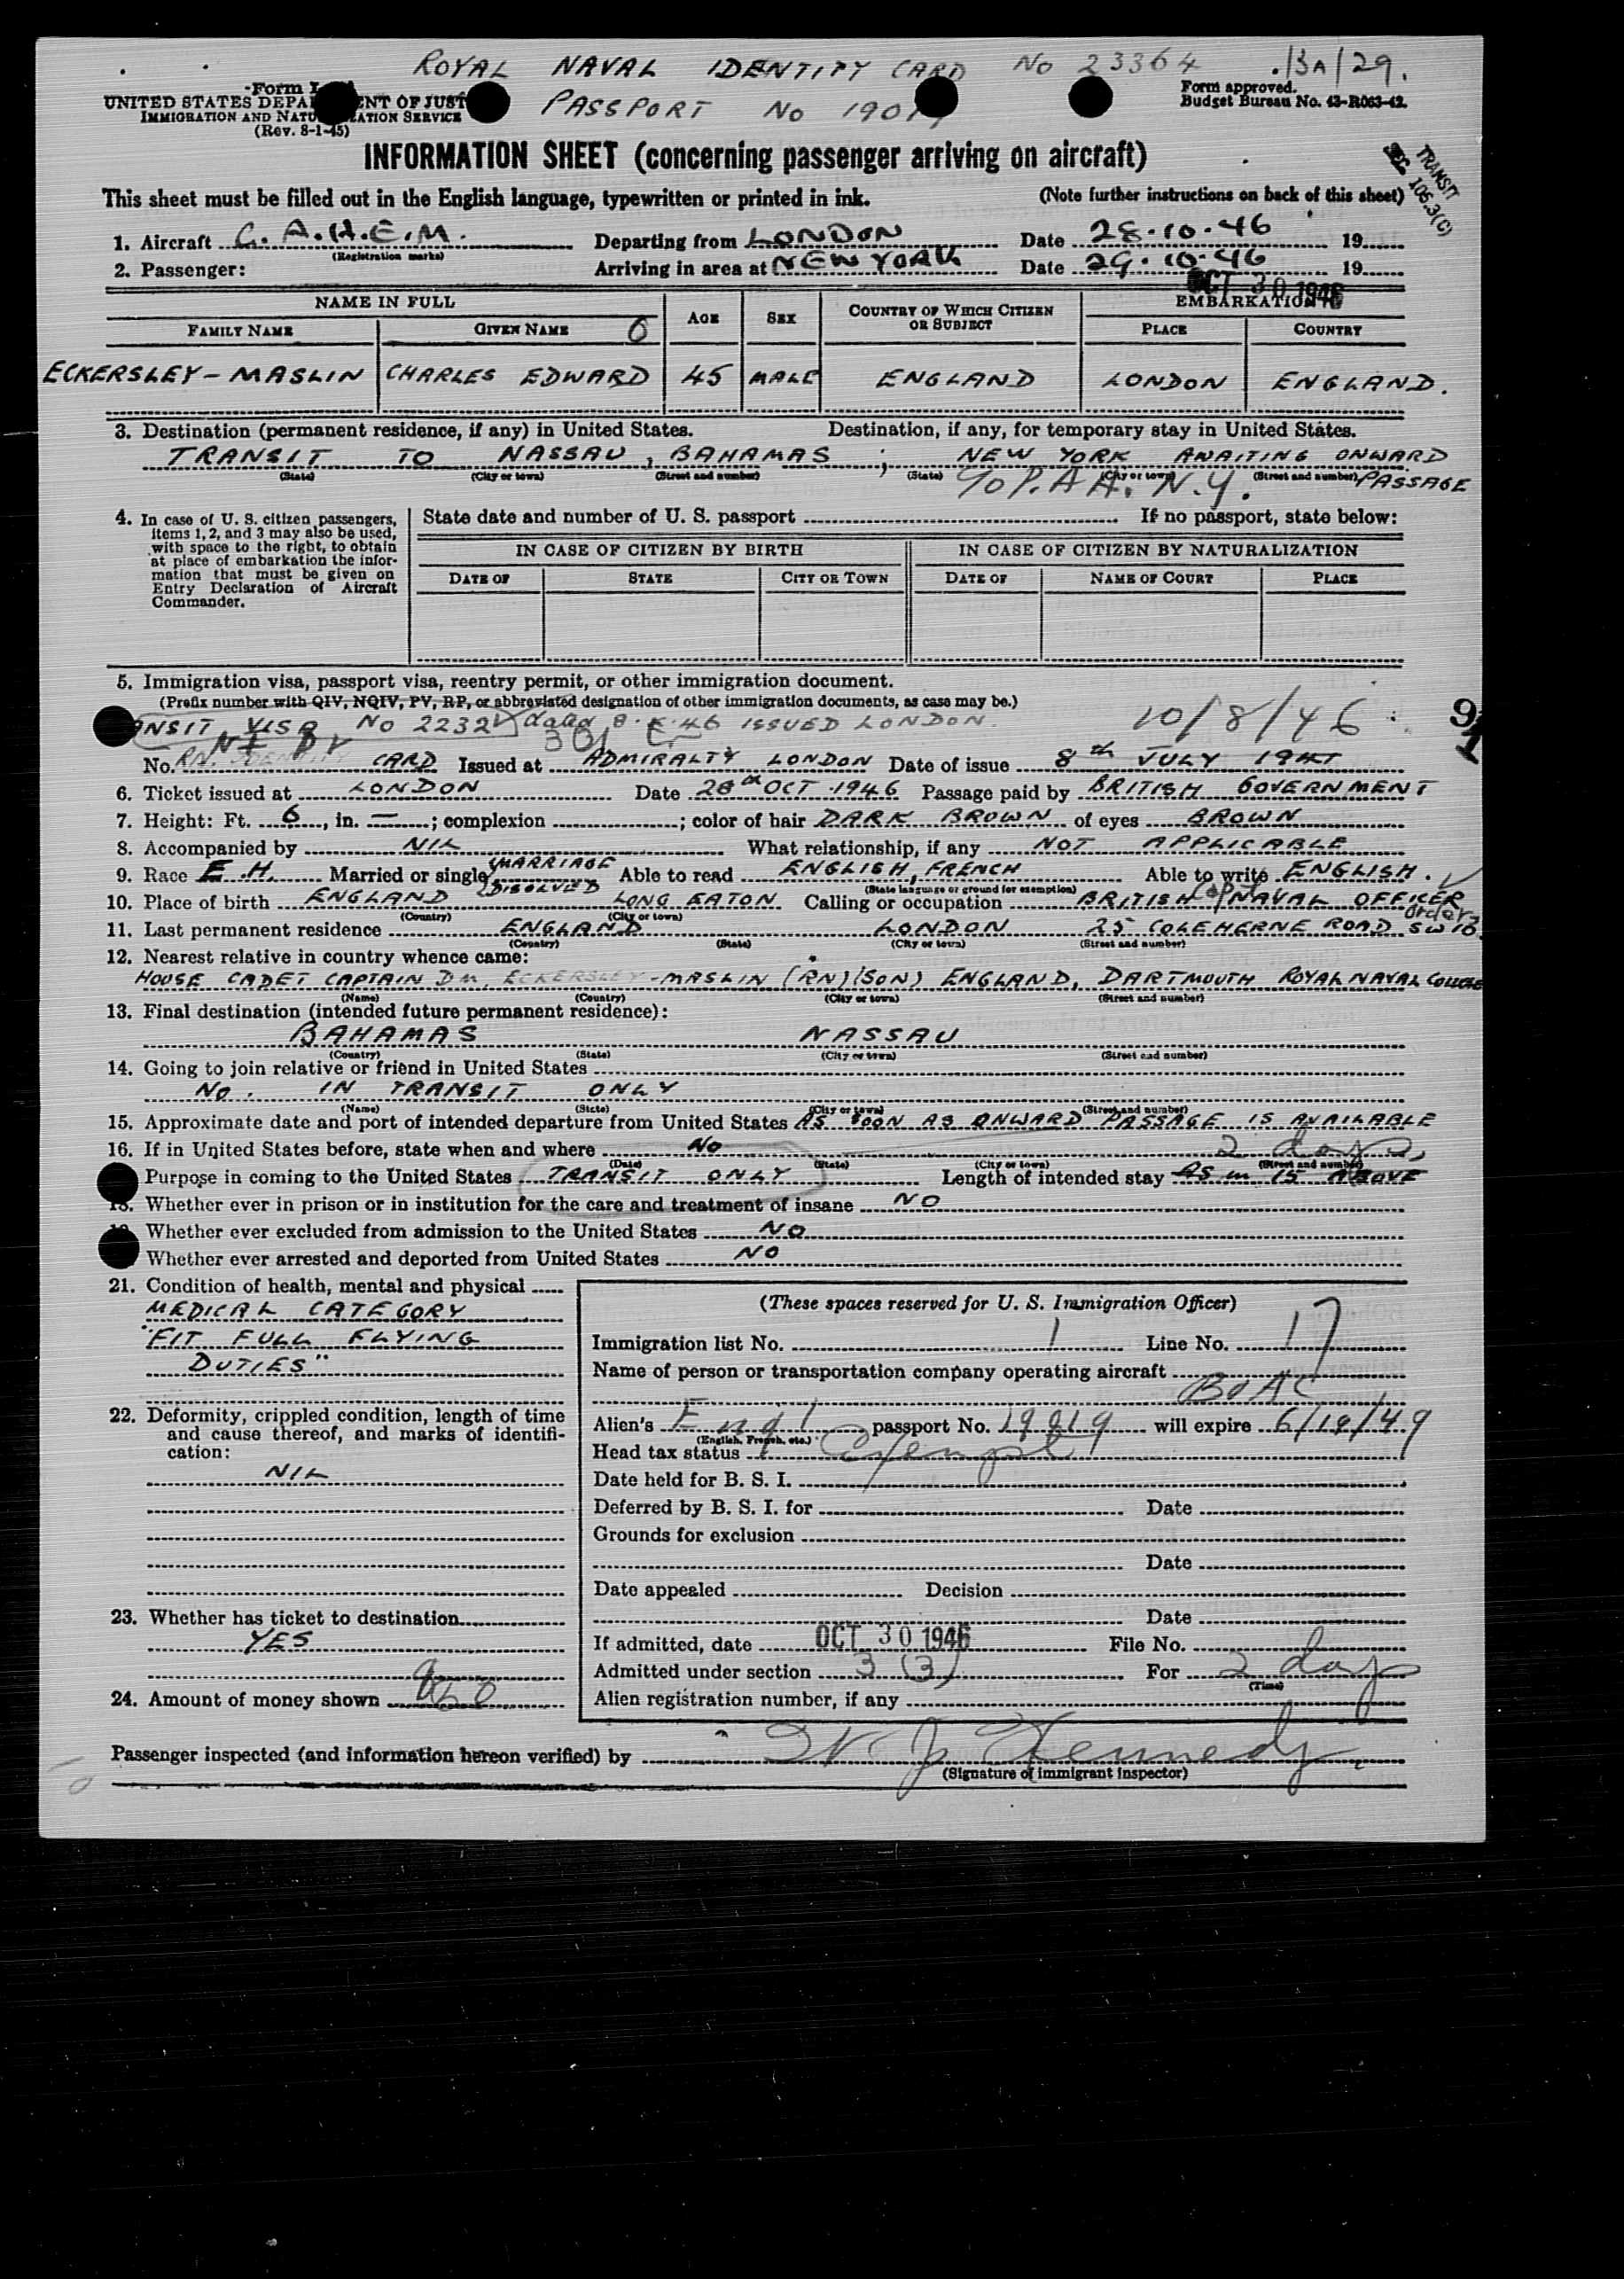 ROYAL NAVAL IDENTITY CARD No 23364 .13A/29.
Form
UNITED STATES DEPA ENT OF JUST
PASSPORT No 190
Form approved.
Budget Bureau No. 43-R063-42.
IMMIGRATION AND NATU ATION SERVICE
(Rev. 8-1-45)
INFORMATION SHEET (concerning passenger arriving on aircraft)
TRANSIT
106.3(C)
This sheet must be filled out in the English language, typewritten or printed in ink. (Note further instructions on back of this sheet)
1. Aircraft G. A.H.E.M. Departing from LONDON Date 28.10.46 19
(Registration marks)
2. Passenger: Arriving in area at NEW YORK Date 29.10.46 19
OCT 30 1946
NAME IN FULL AGE SEX COUNTRY OF WHICH CITIZEN OR SUBJECT EMBARKATION
FAMILY NAME GIVEN NAME 6 PLACE COUNTRY
ECKERSLEY-MASLIN CHARLES EDWARD 45 MALE ENGLAND LONDON ENGLAND.
3. Destination (permanent residence, if any) in United States. Destination, if any, for temporary stay in United States.
TRANSIT TO NASSAU, BAHAMAS ; NEW YORK AWAITING ONWARD
(State) (City or town) (Street and number) (State) (City or town) (Street and number) PASSAGE
% P.A.A. N.Y.
4. In case of U. S. citizen passengers, items 1, 2, and 3 may also be used, with space to the right, to obtain at place of embarkation the information that must be given on Entry Declaration of Aircraft Commander.
State date and number of U. S. passport If no passport, state below:
IN CASE OF CITIZEN BY BIRTH IN CASE OF CITIZEN BY NATURALIZATION
DATE OF STATE CITY OR TOWN DATE OF NAME OF COURT PLACE
5. Immigration visa, passport visa, reentry permit, or other immigration document.
(Prefix number with QIV, NQIV, PV, RP, or abbreviated designation of other immigration documents, as case may be.)
ANSIT VISA No 2232 dated 8. .46 ISSUED LONDON. 10/8/46
91
No. R.N. IDENTITY CARD Issued at ADMIRALTY LONDON Date of issue 8th JULY 194
6. Ticket issued at LONDON Date 28th OCT 1946 Passage paid by BRITISH GOVERNMENT
7. Height: Ft. 6, in. —; complexion ; color of hair DARK BROWN of eyes BROWN
8. Accompanied by NIL What relationship, if any NOT APPLICABLE
9. Race E.H. Married or single MARRIAGE DISOLVED Able to read ENGLISH, FRENCH Able to write ENGLISH.
(State language or ground for exemption)
10. Place of birth ENGLAND LONG EATON Calling or occupation BRITISH Capt NAVAL OFFICER
(Country) (City or town) orders
11. Last permanent residence ENGLAND LONDON 25 COLEHERNE ROAD SW10.
(Country) (State) (City or town) (Street and number)
12. Nearest relative in country whence came:
HOUSE CADET CAPTAIN DM. ECKERSLEY-MASLIN (RN)(SON) ENGLAND, DARTMOUTH ROYAL NAVAL COLLEGE
(Name) (Country) (City or town) (Street and number)
13. Final destination (intended future permanent residence):
BAHAMAS NASSAU
(Country) (State) (City or town) (Street and number)
14. Going to join relative or friend in United States
No. IN TRANSIT ONLY
(Name) (State) (City or town) (Street and number)
15. Approximate date and port of intended departure from United States AS SOON AS ONWARD PASSAGE IS AVAILABLE
16. If in United States before, state when and where No 2 days,
(Date) (State) (City or town) (Street and number)
Purpose in coming to the United States TRANSIT ONLY Length of intended stay AS in 15 ABOVE
18. Whether ever in prison or in institution for the care and treatment of insane NO
Whether ever excluded from admission to the United States NO
Whether ever arrested and deported from United States NO
21. Condition of health, mental and physical
MEDICAL CATEGORY
"FIT FULL FLYING
DUTIES"
22. Deformity, crippled condition, length of time and cause thereof, and marks of identification:
NIL
23. Whether has ticket to destination
YES
24. Amount of money shown
(These spaces reserved for U. S. Immigration Officer)
Immigration list No. 1 Line No. 17
Name of person or transportation company operating aircraft
BOAC
Alien's Engl passport No. 19019 will expire 6/19/49
(English, French, etc.)
Head tax status Exempt
Date held for B. S. I.
Deferred by B. S. I. for Date
Grounds for exclusion
Date
Date appealed Decision
Date
If admitted, date OCT 30 1946 File No.
Admitted under section 3 (3) For 2 days
(Time)
Alien registration number, if any
Passenger inspected (and information hereon verified) by W J Kennedy
(Signature of immigrant inspector)